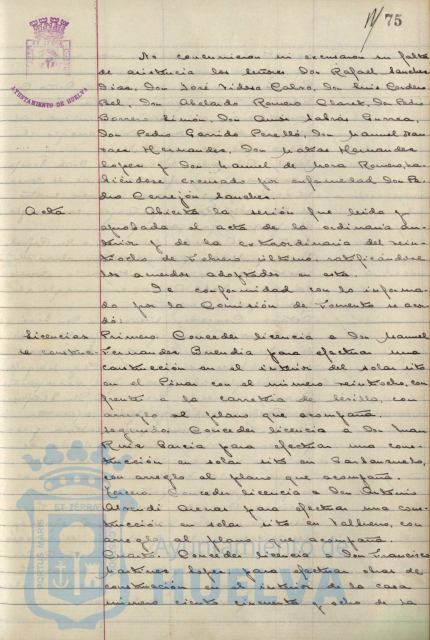 75
AYUNTAMIENTO DE HUELVA
No concurrieron ni excusaron su falta
de asistencia los señores Don Rafael Sanchez
Diaz, Don José Tidero Calvo, Don Luis Cordero
Bel, Don Abelardo Romero Claret, Don Pedro
Borrero Limón, Don Amós Sabrás Gurrea,
Don Pedro Garrido Perelló, Don Manuel
Hernandez, Don Matias Hernandez
Lopez y Don Manuel de Mora Romero, ha-
biéndose excusado por enfermedad Don Pe-
dro Cerrejón Sanchez.
Acta
Abierta la sesión fue leida y
aprobada el acta de la ordinaria an-
terior y de la extraordinaria del vein-
tiocho de Febrero último, ratificándose
los acuerdos adoptados en esta.
De conformidad con lo informa-
do por la Comisión de Fomento se acor-
dó:
Licencias
Primero. Conceder licencia a Don Manuel
Fernandez Buendia para efectuar una
construcción en el interior del solar sito
en el Pinar con el número veintiocho, con
frente a la carretera de Sevilla, con
arreglo al plano que acompaña.
Segundo. Conceder licencia a Don Juan
Ruiz Garcia para efectuar una cons-
trucción en solar sito en
con arreglo al plano que acompaña.
Tercero. Conceder licencia a Don Antonio
Arenas para efectuar una cons-
trucción en solar sito en con
arreglo al plano que acompaña.
Cuarto. Conceder licencia a Don Francisco
Martinez Lopez para efectuar obras de
construcción en el interior de la casa
número ciento cincuenta y ocho de la
PORTUS MARIS
ET TERRAE
Ayuntamiento de
HUELVA